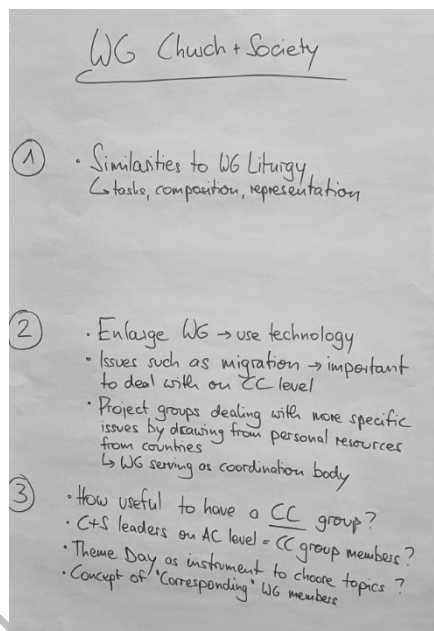 WG Church + Society
1 • Similarities to WG Liturgy
↳ tasks, composition, representation
2 • Enlarge WG → use technology
• Issues such as migration → important
to deal with on CC level
• Project groups dealing with more specific
issues by drawing from personal resources
from counties
↳ WG serving as coordination body
3 • How useful to have a CC group?
• C+S leaders on AC level = CC group members?
• Theme Day as instrument to choose topics?
• Concept of "Corresponding" WG members